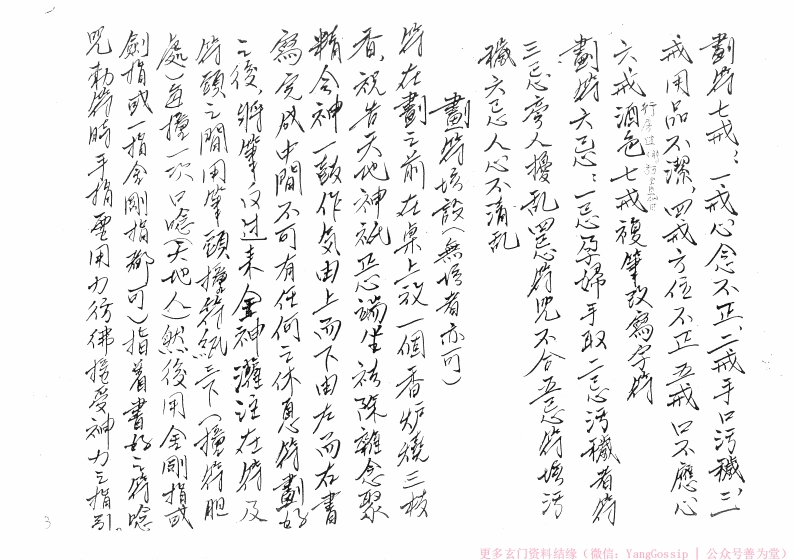 劃符七戒：一戒心念不正、二戒手口污穢、三、
戒用品不潔，四戒方位不正 五戒口不應心
六戒酒色七戒複筆改寫字符
劃符六忌：一忌孕婦手取二忌污穢者符
三忌旁人擾乱四忌符咒不合五忌符墖污
穢六忌人心不清乱
劃符墖設(無墖者亦可)
符在劃之前在桌上放一個香炉燒三枝
香，祝告天地神祇正忌端坐袪除雜念聚
精会神一鼓作気由上而下由左而右書
寫完成中間不可有任何之休息符劃好
之後，將筆反过来全神灌注在符及
符頭之間用筆頭撞符紙三下（撞符胆
處)每撞一次口唸(天地人)然後用金剛指或
劍指或一指金剛指都可)指着書好之符唸
咒勅符時手指要用力彷彿接受神力之指引。
3
更多玄门资料结缘（微信：YangGossip | 公众号善为堂）